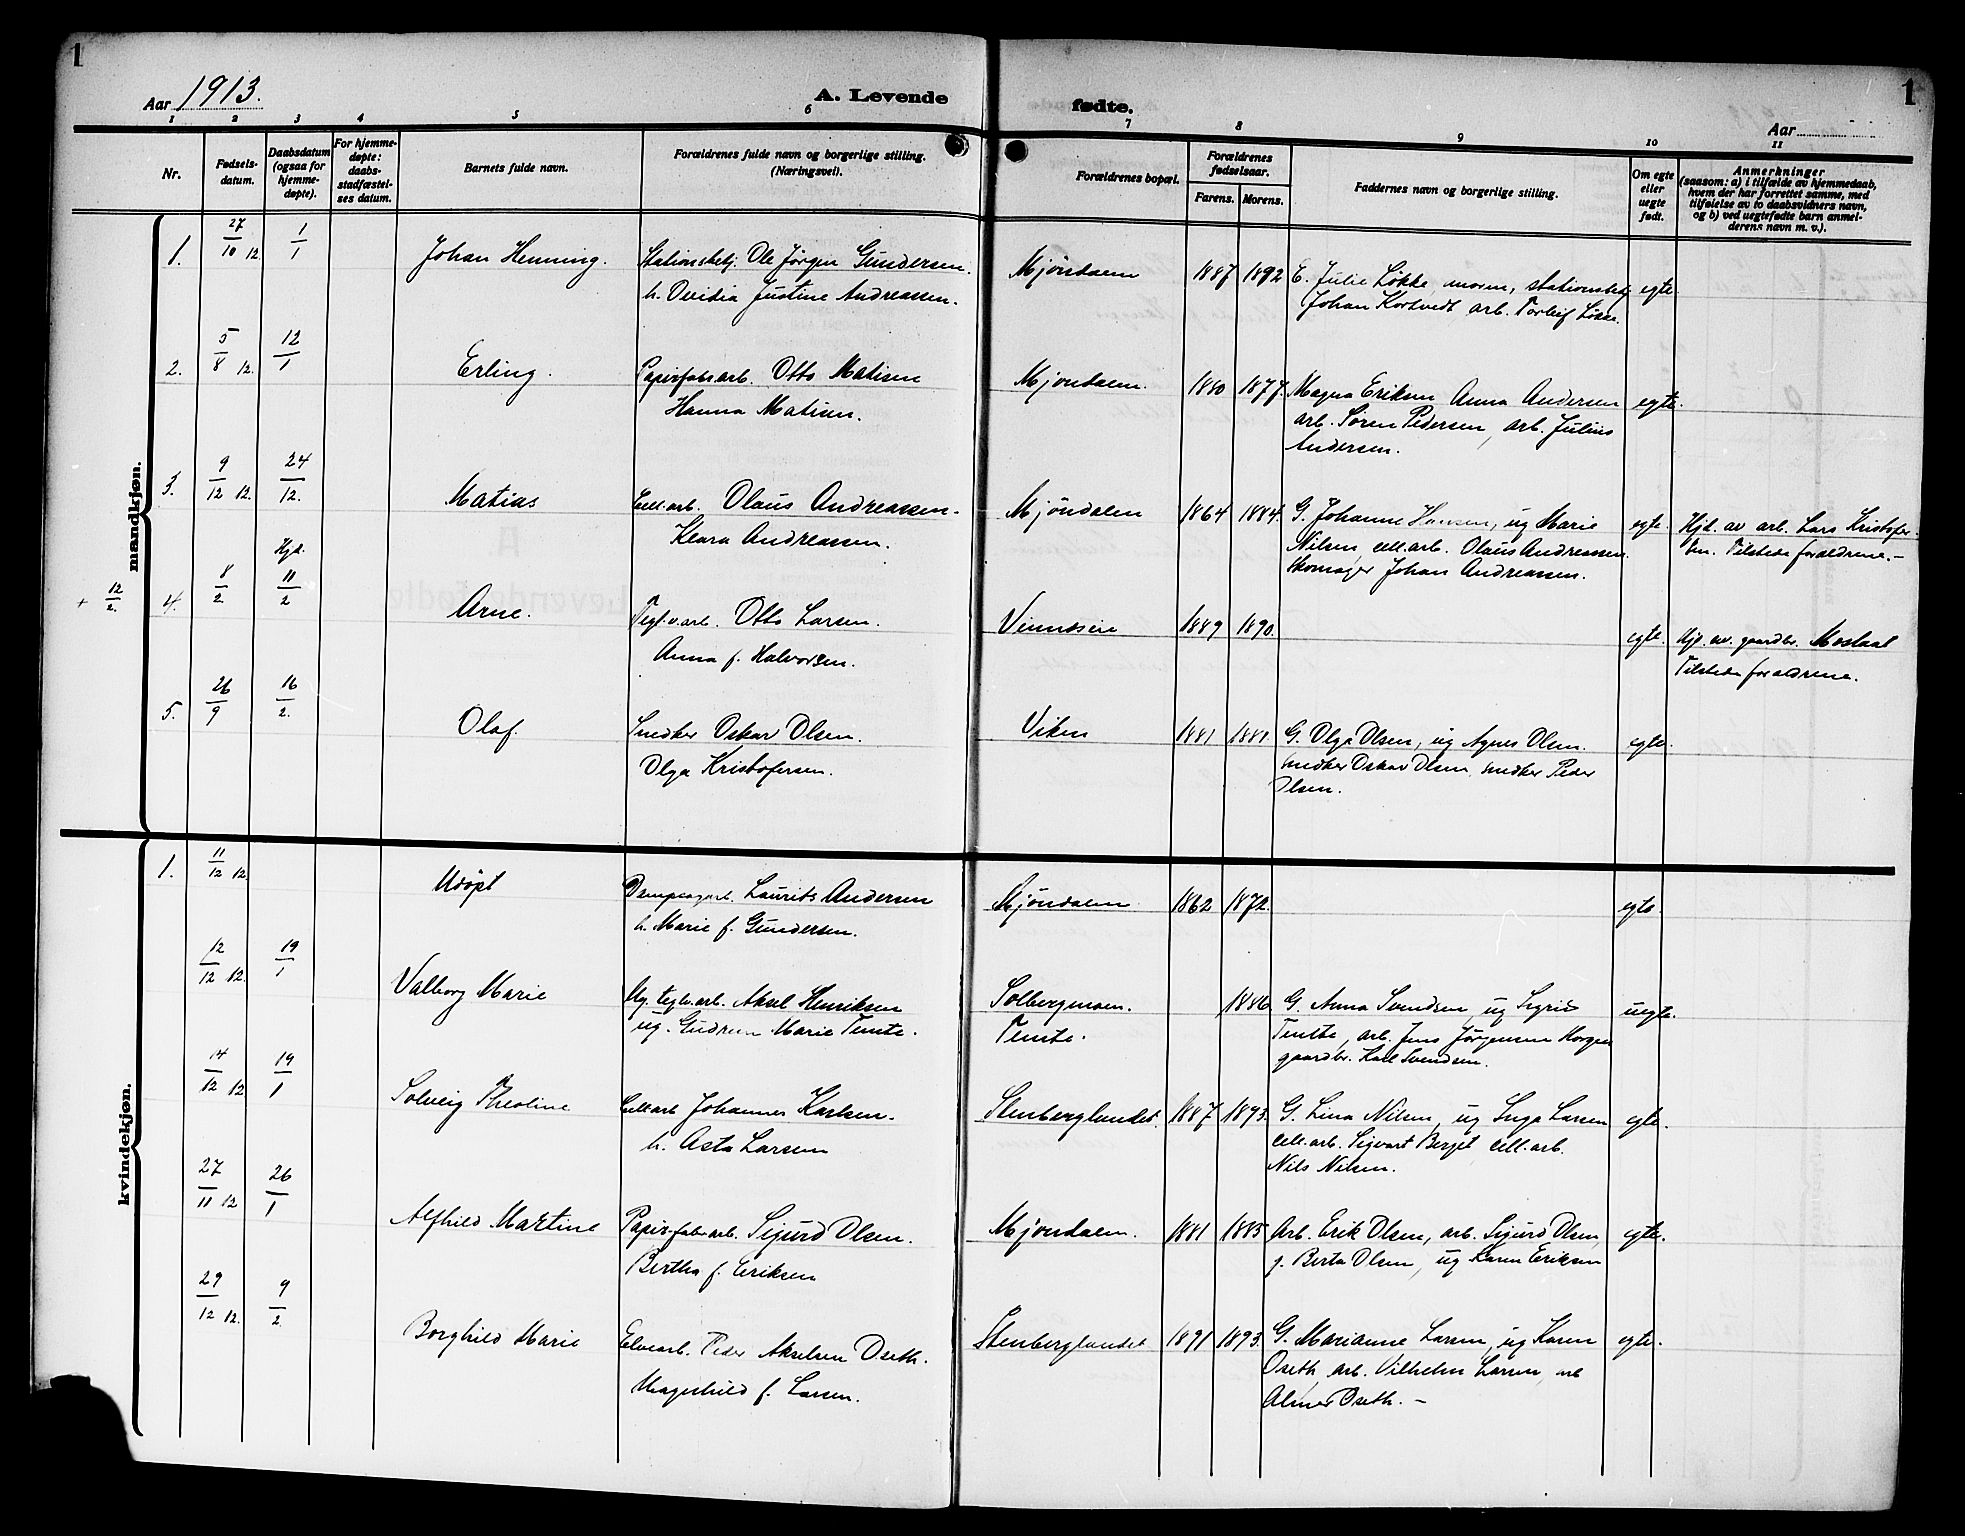 1
1
Aar 1913.
A. Levende
fødte.
Aar
1 2 3 4 5 6 7 8 9 10 11
Nr.
Fødsels-
datum.
Daabsdatum
(ogsaa for
hjemme-
døpte).
For hjemme-
døpte:
daabs-
stadfæstel-
ses datum.
Barnets fulde navn.
Forældrenes fulde navn og borgerlige stilling.
(Næringsvei).
Forældrenes bopæl.
Forældrenes
fødselsaar.
Farens. Morens.
Faddernes navn og borgerlige stilling.
Om egte
eller
uegte
født.
Anmerkninger
(saasom: a) i tilfælde av hjemmedaab,
hvem der har forrettet samme, med
tilføielse av to daabsvidners navn,
og b) ved uegtefødte barn anmel-
derens navn m. v.).
mandkjøn.
1. 27/10 12. 1/1 Johan Henning. Stationsbetj. Ole Jørgen Gundersen. Mjöndalen 1887 1892 E. Julie Løkke, moren, stationsbetj egte.
h. Ovidia Justine Andreassen. Johan Kortvedt arb. Torleif Løkke.
2. 5/8 12. 12/1 Erling. Papirfabr.arb. Otto Matisen Mjöndalen. 1880 1877. Magna Eriksen Anna Andersen egte.
Hanna Matisen. arb. Søren Pedersen, arb. Julius
Andersen.
3. 9/12 12. 24/12. Matias Cell.arb. Olaus Andreassen. Mjöndalen 1864 1884. G. Johanne Hansen, ug Marie egte. Hjd. av arb. Lars Kristofer-
Hjd. Klara Andreassen. Nilsen, cell.arb. Olaus Andreassen sen. Tilstede forældrene.-
skomager Johan Andreassen.
+ 12/2. 4. 8/2. 11/2 Arne. Tegl.v.arb. Otto Larsen. 1889 1890. egte. Hjd. av. gaardbr.
Anna f. Halvorsen. Tilstede forældrene.
5. 26/9 16/2. Olaf. Snedker Oskar Olsen. Viken 1881 1881 G. Olga Olsen, ug Agnes Olsen. egte.
Olga Kristofersen. snedker Oskar Olsen, snedker Peder
Olsen.
kvindekjøn.
1. 11/12 12. Udøpt Dampsagarb. Laurits Andersen Mjöndalen 1862 1872. egte.
h. Marie f. Gundersen.
12/12 12. 19/1 Valborg Marie Ug. teglv.arb. Aksel Henriksen Solbergmoen. 1886 G. Anna Svendsen, ug Sigrid uegte.
ug. Gudrun Marie Temte. Temte. Temte, arb. Jens Jørgensen Horgen
gaardbr. Karl Svendsen.
14/12 12 19/1 Solveig Theoline Cell.arb Johannes Karlsen. Stenberglandet. 1887 1893. G. Lina Nilsen, ug Inga Larsen egte.
h. Asta Larsen cell.arb. Sigvart Berget cell.arb.
Nils Nilsen.
27/11 12 26/1 Alfhild Martine Papirfabr.arb. Sigurd Olsen. Mjöndalen. 1881 1885 Arb. Erik Olsen, arb. Sigurd Olsen, egte.
Bertha f. Eriksen g. Berta Olsen, ug Karen Eriksen
29/12 12. 9/2. Borghild Marie Elvearb. Peder Akselsen Oseth. Stenberglandet 1891 1893. G. Marianne Larsen, ug Karen egte.
Magnhild f. Larsen. Oseth, arb. Vilhelm Larsen, arb
Almer Oseth. -